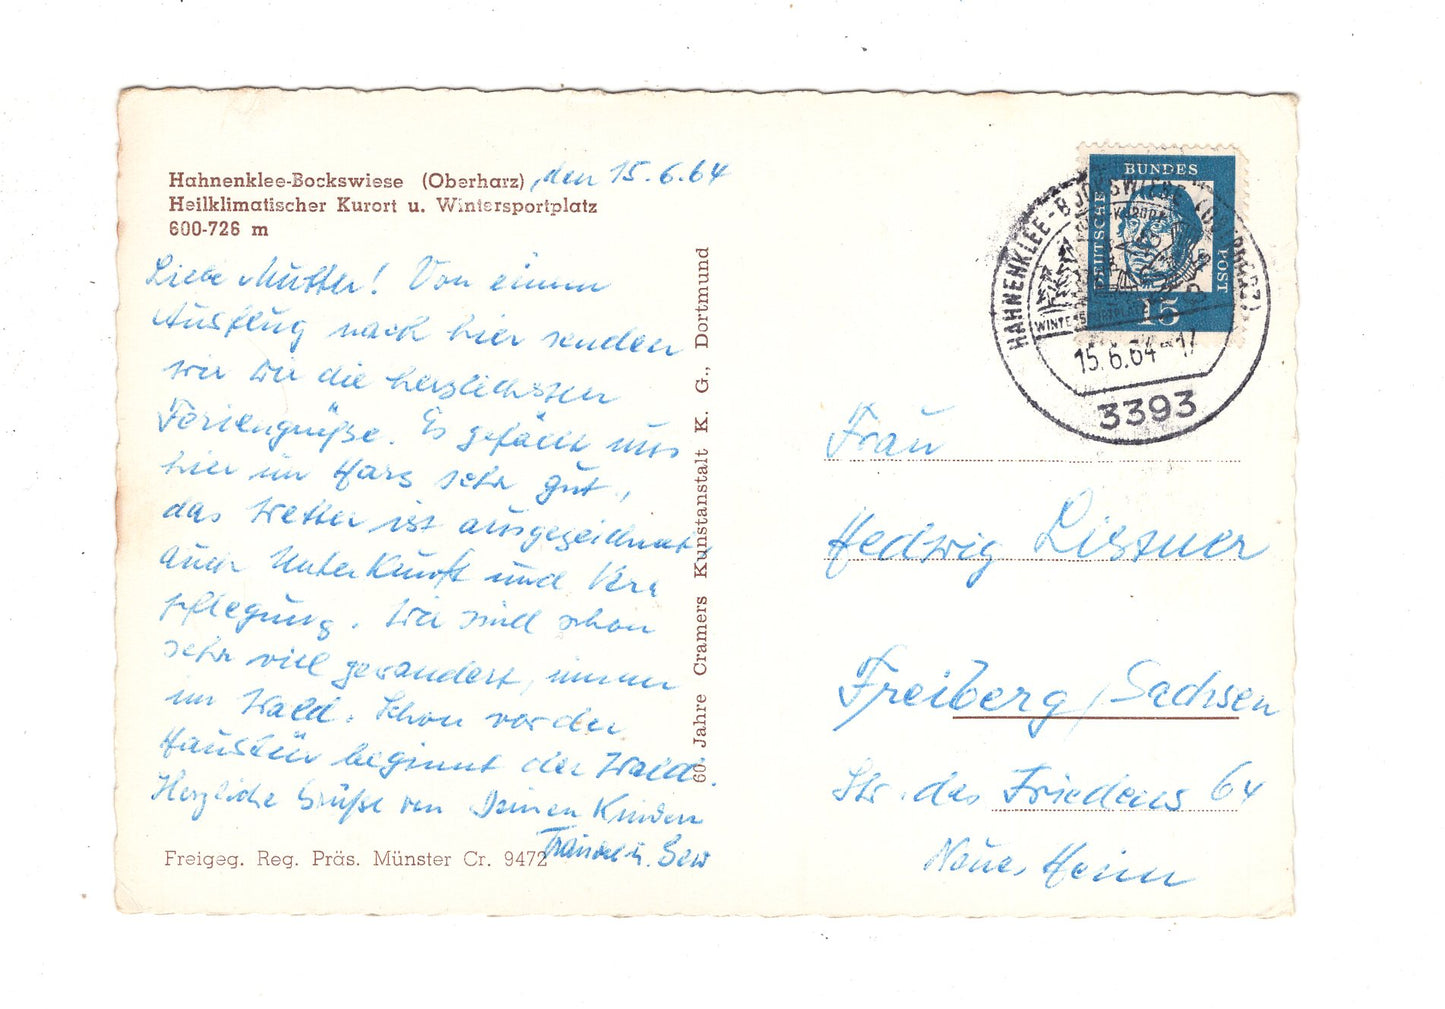 Hahnenklee-Bockswiese (Oberharz), den 15.6.64
Heilklimatischer Kurort u. Wintersportplatz
600-726 m
Liebe Mutter! Von einem
Ausflug nach hier senden
wir Dir die herzlichsten
Feriengrüße. Es gefällt uns
hier im Harz sehr gut,
das Wetter ist ausgezeichnet
auch Unterkunft und Ver
pflegung. Wir sind schon
sehr viel gewandert, immer
im Wald. Schon vor der
Haustür beginnt der Wald.
Herzliche Grüße von Deinen Kindern
u.
Freigeg. Reg. Präs. Münster Cr. 9472
60 Jahre Cramers Kunstanstalt K. G., Dortmund
DEUTSCHE BUNDES POST
15
HAHNENKLEE-BOCKSWIESE (OBERHARZ)
WINTERSPORTPLATZ
15.6.64-17
3393
Frau
Hedwig Listner
Freiberg/Sachsen
Str. des Friedens 64
Neues Heim